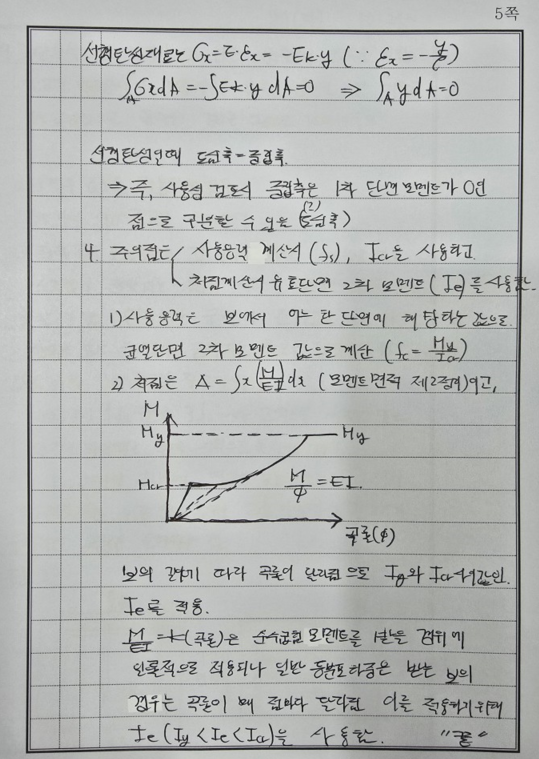 5쪽
선형탄성재료는 σx=E·εx= -Ek·y (∵ εx=-y/ρ)
∫A σx dA = -∫Ek·y dA=0 ⇒ ∫A y dA=0
선형탄성일때 도심축=중립축.
⇒즉, 사용성 검토시 중립축은 1차 단면 모멘트가 0인
점으로 구분할 수 있음 (도심축)
4. 주의점은 사용응력 계산시 (fs), Icr을 사용하고
처짐계산시 유효단면 2차 모멘트(Ie)를 사용함.
1) 사용응력은 보에서 어느 한 단면에 해당하는 값으로
균열단면 2차 모멘트 값으로 계산 (fc= My/Icr)
2) 처짐은 Δ= ∫x(M/EI)dx (모멘트면적 제2정리)이고,
M
My My
Mcr
M/φ =EI.
곡률(φ)
보의 길이에 따라 곡률이 달라짐으로 Ig와 Icr사이값인
Ie를 적용.
M/EI =k(곡률)은 순수굽힘 모멘트를 받는 경우에
이론적으로 적용되나 일반 등분포하중을 받는 보의
경우는 곡률이 매 점마다 달라짐 이를 적용하기위해
Ie (Ig<Ie<Icr)을 사용함. "끝"